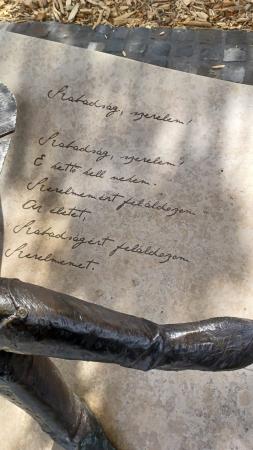 Szabadság, szerelem!
Szabadság, szerelem!
E kettő kell nekem.
Szerelmemért föláldozom
Az életet,
Szabadságért föláldozom
Szerelmemet.